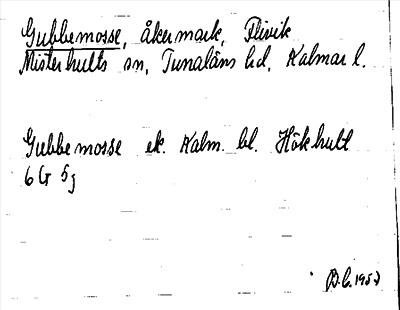 Gubbemosse, åkermark, Flivik
Misterhults sn, Tunaläns hd, Kalmar l.
Gubbemosse ek. Kalm. bl. Hökhult
6 G 5 j